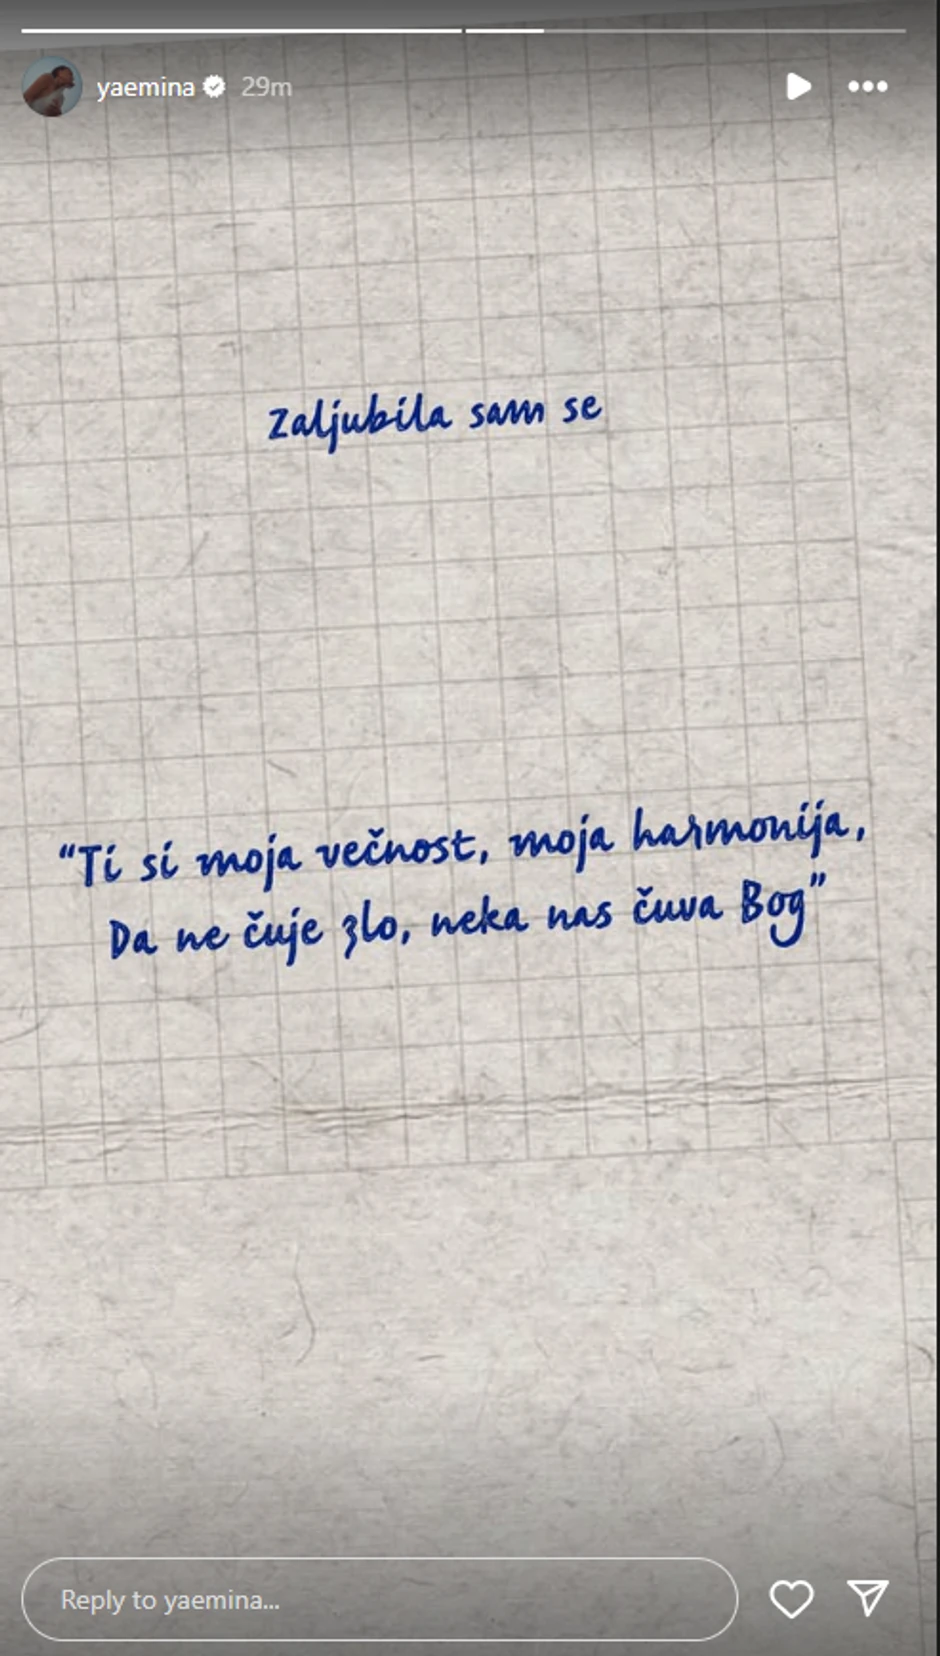 yaemina 29m
Zaljubila sam se
“Ti si moja večnost, moja harmonija,
Da ne čuje zlo, neka nas čuva Bog”
Reply to yaemina...